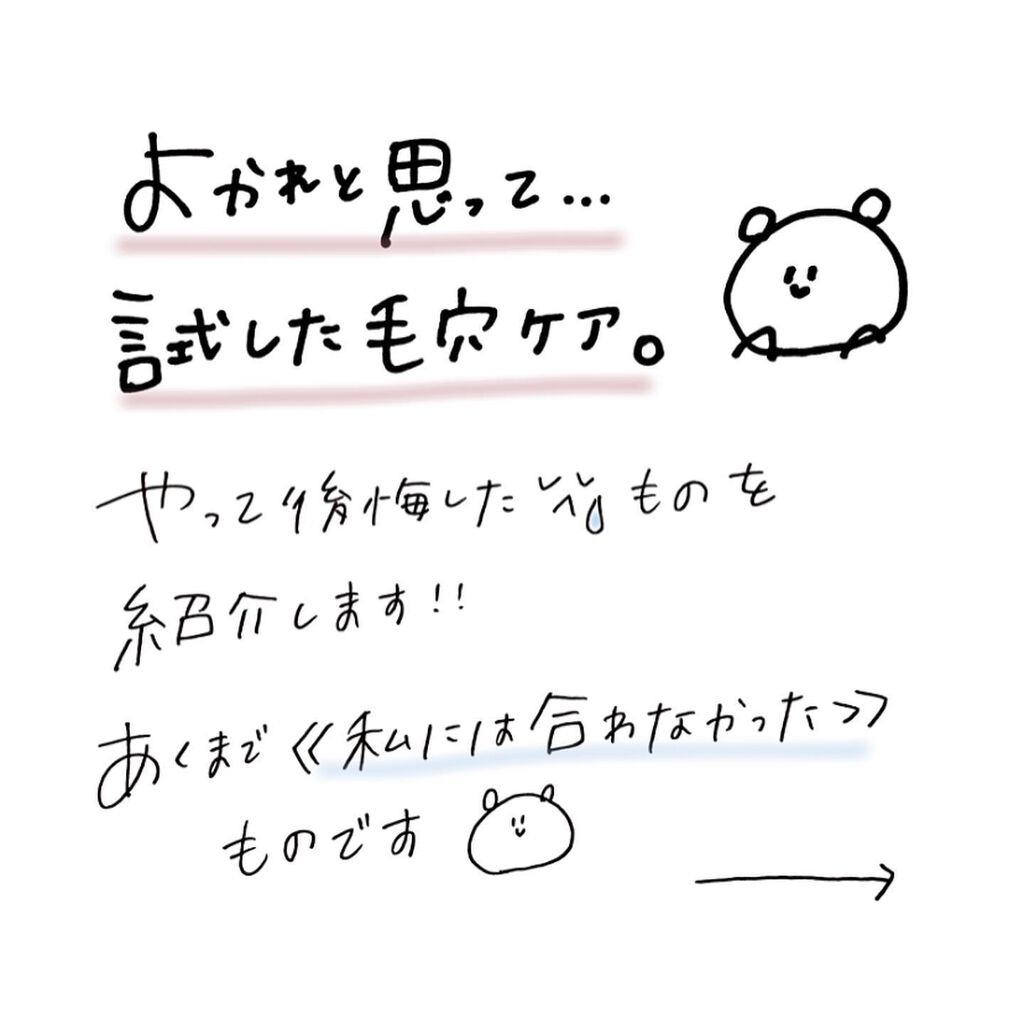 よかれと思って…
試した毛穴ケア。
やって後悔したものを
紹介します!!
あくまで《私には合わなかった》
ものです